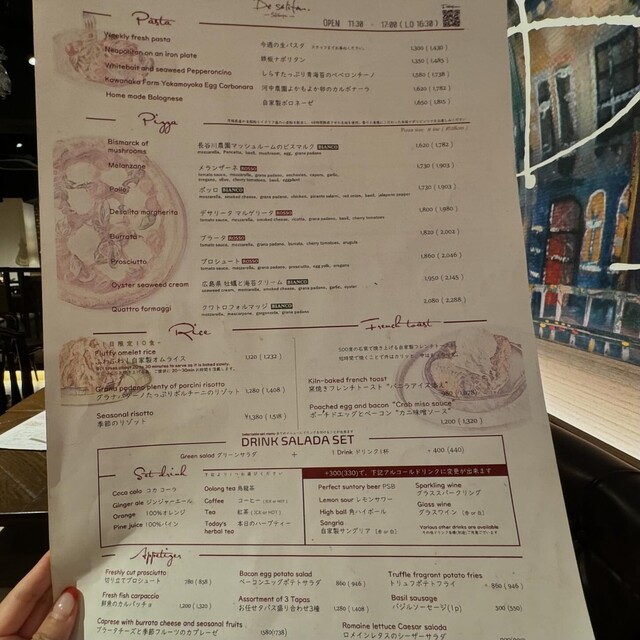 De salita
Pasta
OPEN 11:30 - 17:00 ( L.O 16:30 )
Weekly fresh pasta 今週の生パスタ スタッフまでお尋ねください。 1,300 ( 1,430 )
Neapolitan on an iron plate 鉄板ナポリタン 1,350 ( 1,485 )
Whitebait and seaweed Pepperoncino しらすたっぷり青海苔のペペロンチーノ 1,580 ( 1,738 )
Kawanaka Farm Yokamoyoka Egg Carbonara 河中農園よかもよか卵のカルボナーラ 1,620 ( 1,782 )
Home made Bolognese 自家製ボロネーゼ
Pizza
Bismarck of mushrooms 長谷川農園マッシュルームのビスマルク BIANCO 1,620 ( 1,782 )
Melanzane メランザーネ ROSSO 1,730 ( 1,903 )
Pollo ポッロ BIANCO 1,730 ( 1,903 )
Desalita margherita デサリータ マルゲリータ ROSSO 1,800 ( 1,980 )
Burrata ブラータ ROSSO 1,820 ( 2,002 )
Prosciutto プロシュート ROSSO 1,860 ( 2,046 )
Oyster seaweed cream 広島県 牡蠣と海苔クリーム BIANCO 1,950 ( 2,145 )
Quattro formaggi クワトロフォルマッジ BIANCO 2,080 ( 2,288 )
Rice
1日限定10食
Fluffy omelet rice
ふわふわ自家製オムライス 1,120 ( 1,232 )
Grana padano plenty of porcini risotto
グラナパダーノたっぷりポルチーニのリゾット 1,280 ( 1,408 )
Seasonal risotto
季節のリゾット ¥1,380 ( 1,518 )
French toast
500度の石窯で焼き上げる自家製フレンチトースト
Kiln-baked french toast
窯焼きフレンチトースト "バニラアイス添え"
Poached egg and bacon "Crab miso sauce"
ポーチドエッグとベーコン "カニ味噌ソース" 1,200 ( 1,320 )
DRINK SALADA SET
Green salad グリーンサラダ + 1 Drink ドリンク1杯 + 400 (440)
Set drink 下記よりお一つお選びください
Coca cola コカ コーラ
Ginger ale ジンジャーエール
Orange 100%オレンジ
Pine juice 100%パイン
Oolong tea 烏龍茶
Coffee コーヒー (ICE or HOT)
Tea 紅茶 (ICE or HOT)
Today's herbal tea 本日のハーブティー
+300(330)で、下記アルコールドリンクに変更が出来ます
Perfect suntory beer PSB
Lemon sour レモンサワー
High ball 角ハイボール
Sangria
自家製サングリア (赤 or 白)
Sparkling wine
グラススパークリング
Glass wine
グラスワイン (赤 or 白)
Various other drinks are available
Appetizer
Freshly cut prosciutto
切り立てプロシュート 780 ( 858 )
Fresh fish carpaccio
鮮魚のカルパッチョ 1,200 ( 1,320 )
Caprese with burrata cheese and seasonal fruits
ブラータチーズと季節フルーツのカプレーゼ 1580(1738)
Bacon egg potato salad
ベーコンエッグポテトサラダ 860 ( 946 )
Assortment of 3 Tapas
お任せタパス盛り合わせ3種 1,280 ( 1,408 )
Truffle fragrant potato fries
トリュフポテトフライ 860 ( 946 )
Basil sausage
バジルソーセージ(1p) 500 (550)
Romaine lettuce Caesar salada
ロメインレタスのシーザーサラダ